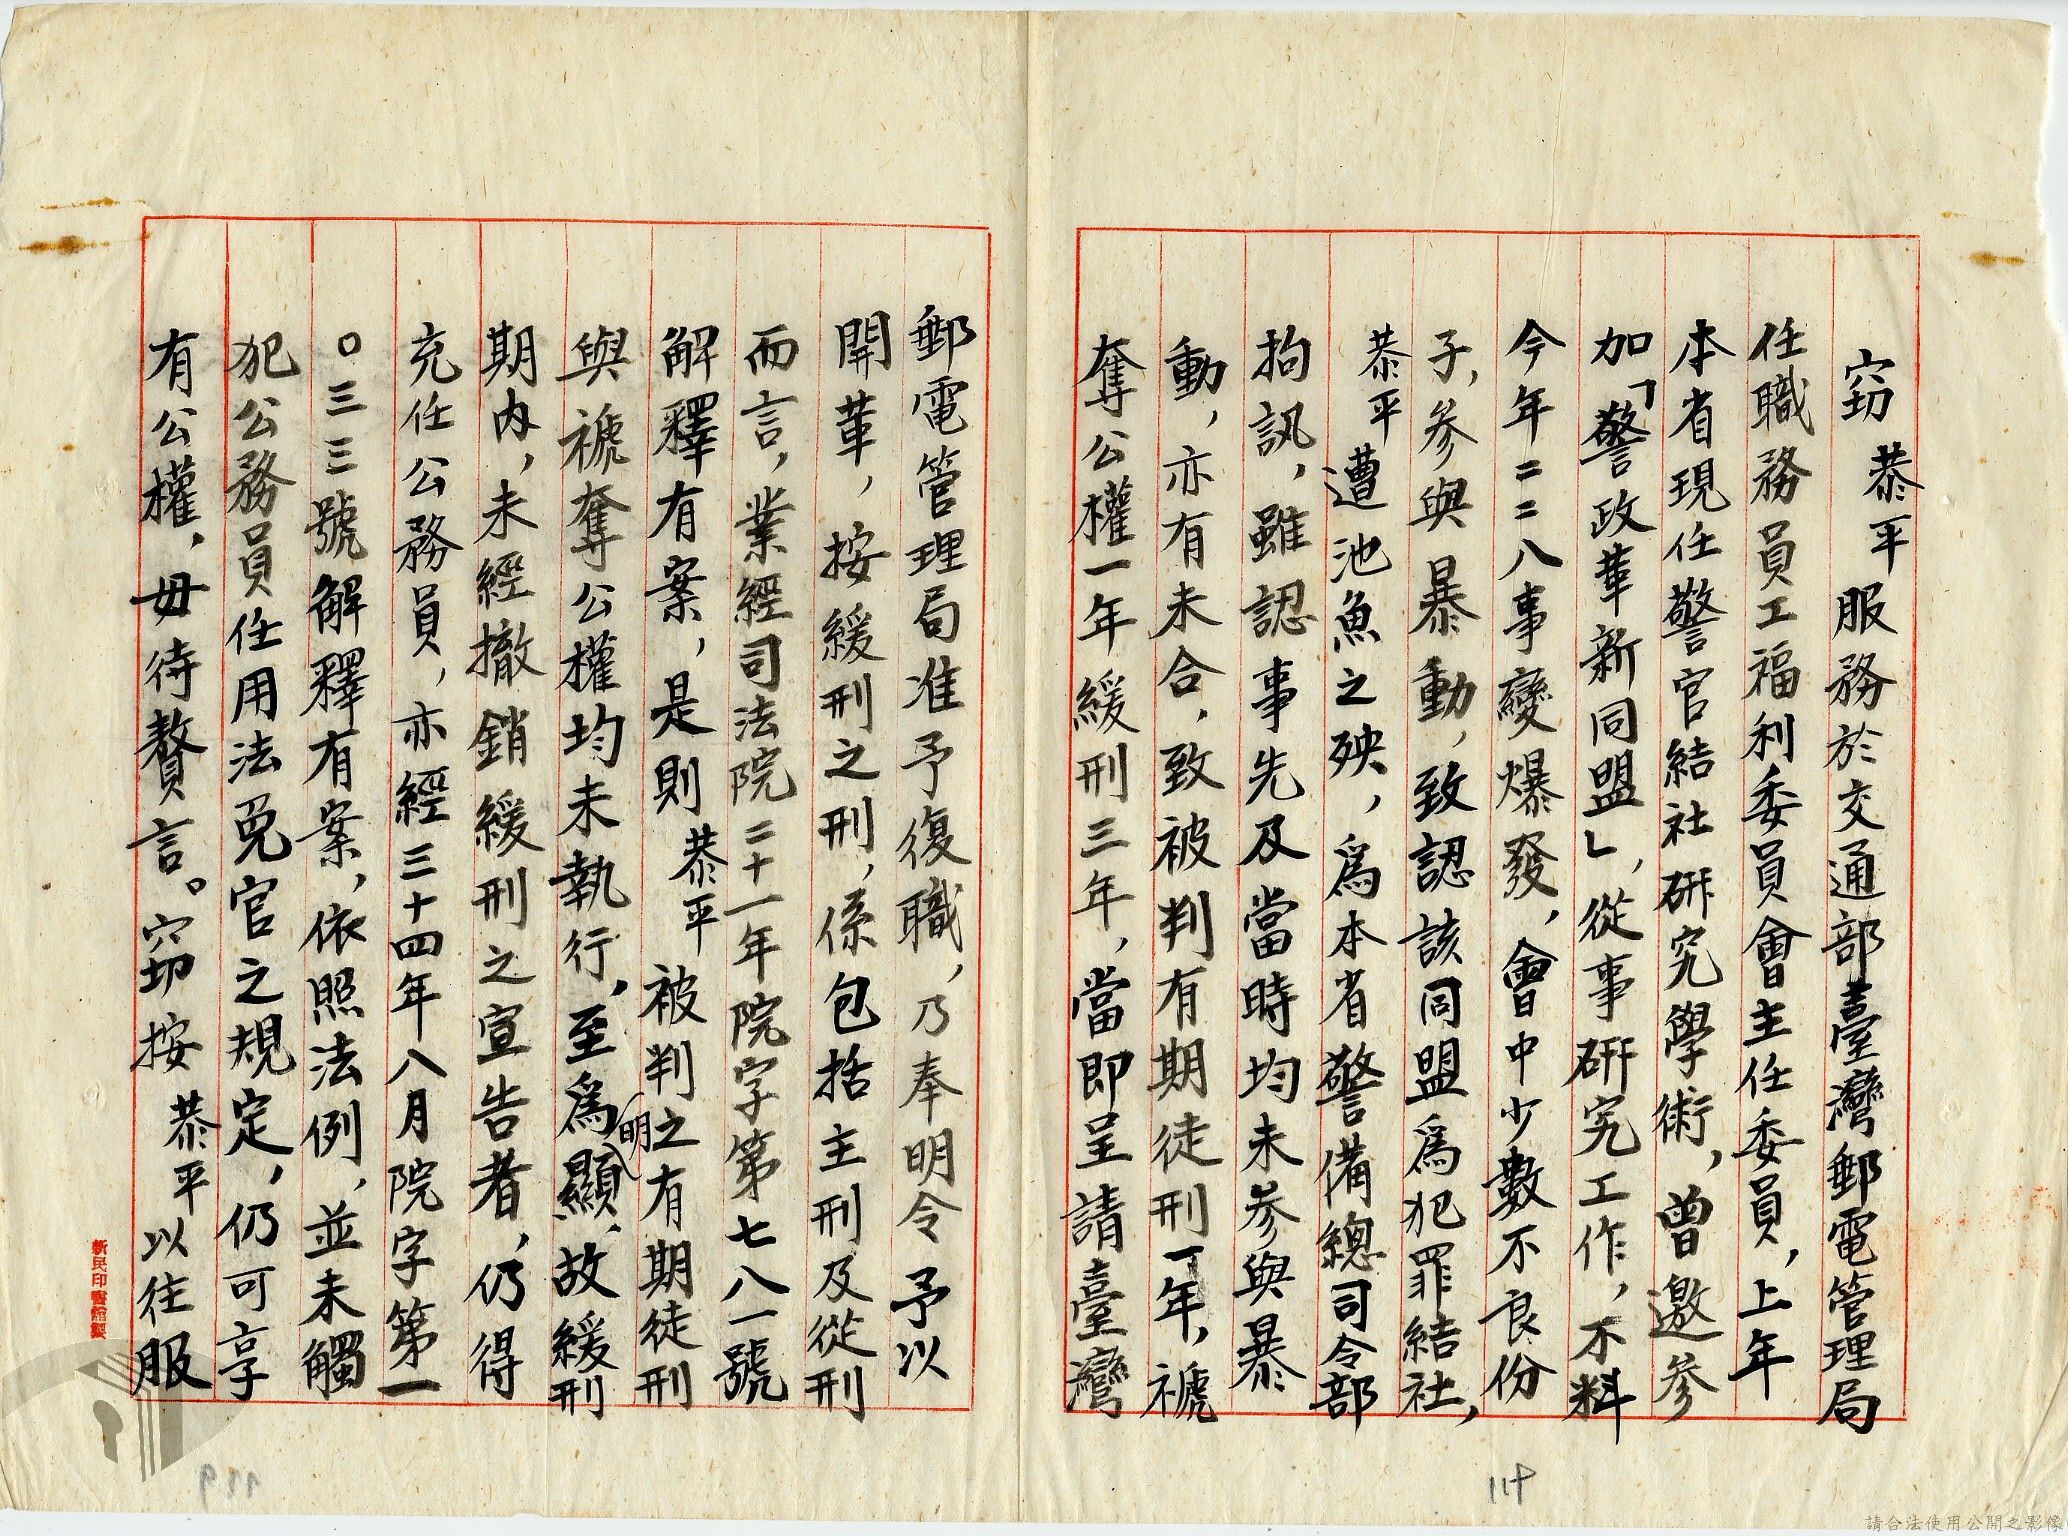 竊恭平服務於交通部臺灣郵電管理局
任職務員工福利委員會主任委員，上年
本省現任警官結社研究學術，曾邀參
加「警政革新同盟」，從事研究工作，不料
今年二二八事變爆發，會中少數不良份
子，參與暴動，致認該同盟爲犯罪結社，
恭平遭池魚之殃，爲本省警備總司令部
拘訊，雖認事先及當時均未參與暴
動，亦有未合，致被判有期徒刑一年，褫
奪公權一年緩刑三年，當即呈請臺灣
郵電管理局准予復職，乃奉明令予以
開革，按緩刑之刑，係包括主刑及從刑
而言，業經司法院二十一年院字第七八一號
解釋有案，是則恭平被判之有期徒刑
與褫奪公權均未執行，至爲顯明，故緩刑
期內，未經撤銷緩刑之宣告者，仍得
充任公務員，亦經三十四年八月院字第一
〇三三號解釋有案，依照法例，並未觸
犯公務員任用法免官之規定，仍可享
有公權，毋待贅言。竊按恭平以往服
新民印書館製
119
請合法使用公開之影像